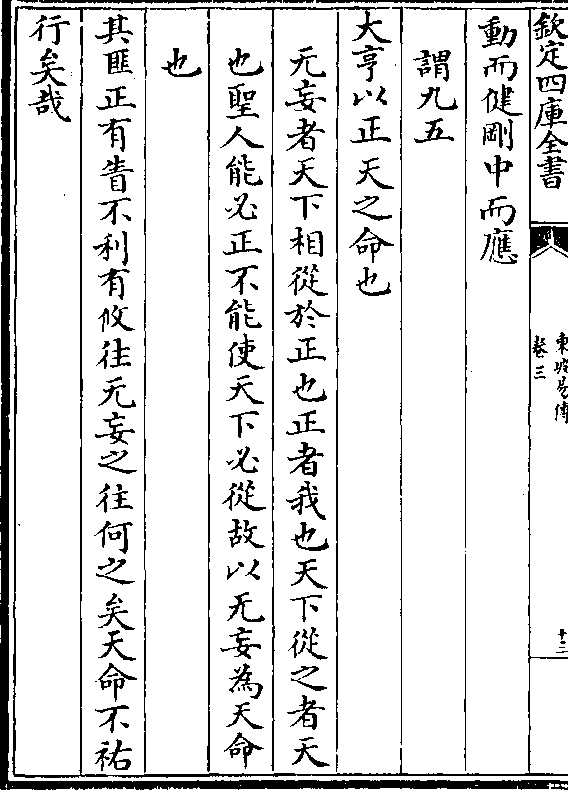 欽定四庫全書
東坡易傳
卷三
十三
動而健剛中而應
謂九五
大亨以正天之命也
无妄者天下相從於正也正者我也天下從之者天
也聖人能必正不能使天下必從故以无妄為天命
也
其匪正有眚不利有攸往无妄之往何之矣天命不祐
行矣哉